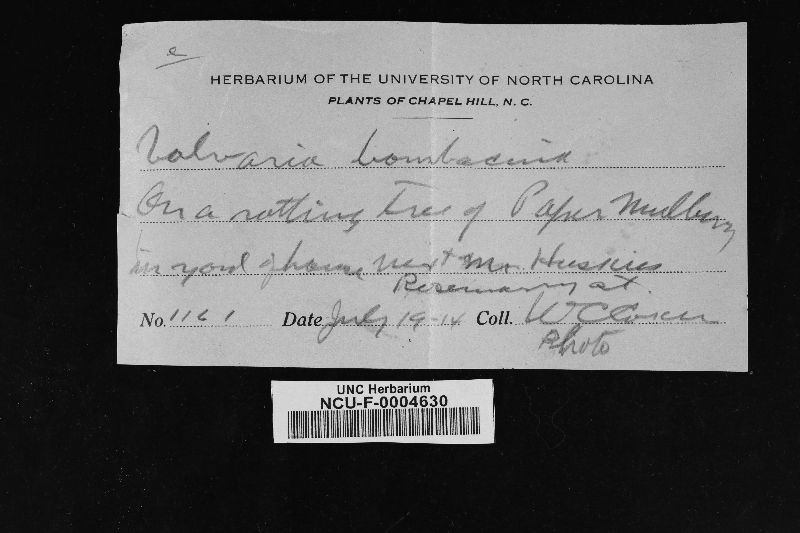 e
HERBARIUM OF THE UNIVERSITY OF NORTH CAROLINA
PLANTS OF CHAPEL HILL, N. C.
Volvaria bombacina
On a rotting tree of Paper Mulberry
in yard of house next Mr. Huskies
Rosemary st.
No. 1161 Date July 19-14 Coll. W C Coker
Photo
UNC Herbarium
NCU-F-0004630